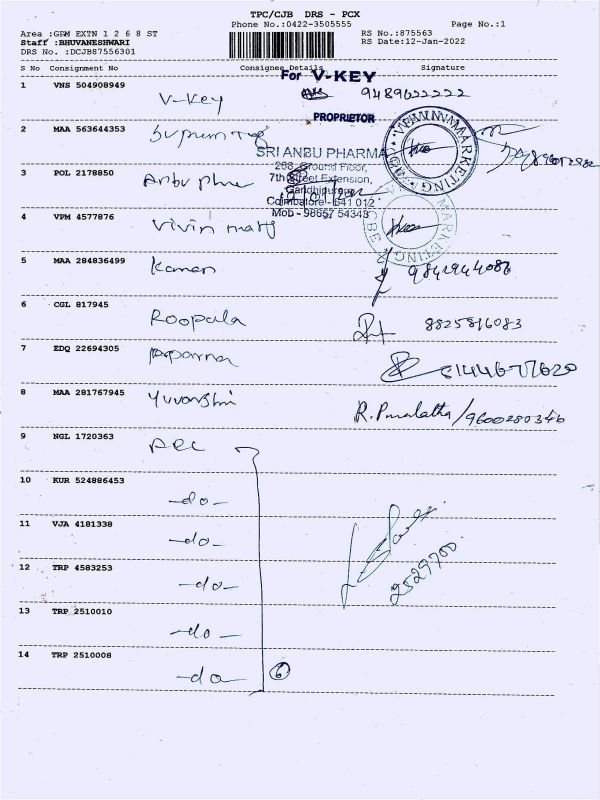 TPC/CJB DRS - PCX
Phone No.:0422-3505555 Page No.:1
Area :GRM EXTN 1 2 6 8 ST RS No.:875563
Staff :BHUVANESHWARI RS Date:12-Jan-2022
DRS No. :DCJB87556301
S No Consignment No Consignee Details Signature
For V-KEY
1 VNS 504908949 V-Key 9489622222
PROPRIETOR
2 MAA 563644353
SRI ANBU PHARMA
Ground Floor,
3 POL 2178850 Anbu
7th Street Extension,
Gandhipuram
Coimbatore - 641 012
Mob - 98657 54343
VIVIN MARKETING
4 VPM 4577876 Vivin
MARKETING
5 MAA 284836499 Kannan
6 CGL 817945 Roopala 8825816083
7 EDQ 22694305 Aparna
8 MAA 281767945 9600280346
9 NGL 1720363 ARC
10 KUR 524886453 -do-
11 VJA 4181338 -do-
12 TRP 4583253 -do-
2529700
13 TRP 2510010 -do-
14 TRP 2510008 -do- 6